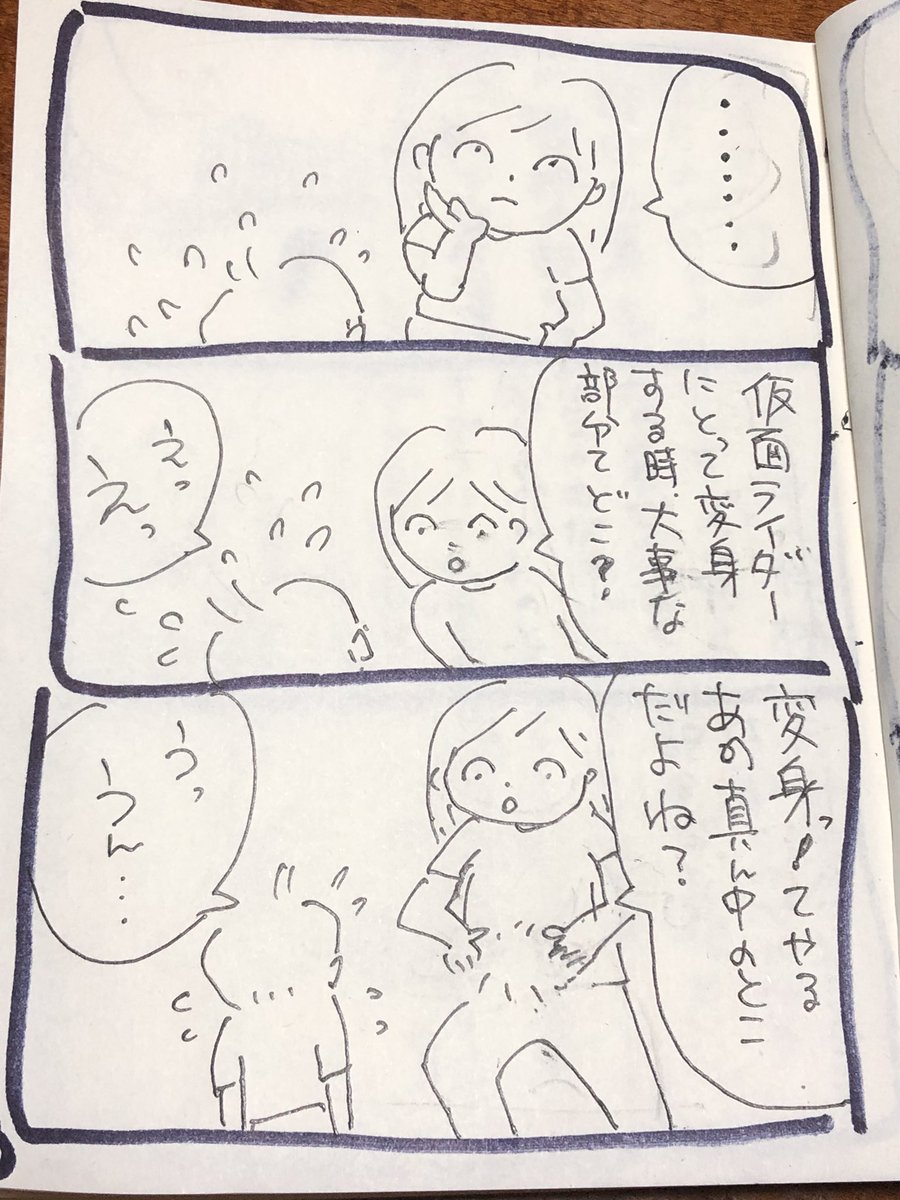 ......
仮面ライダー
にとって変身
する時、大事な
部分てどこ?
えっ
えーっ
変身っ!てやる
あの真ん中のとこ
だよね?
うっ
うーん…